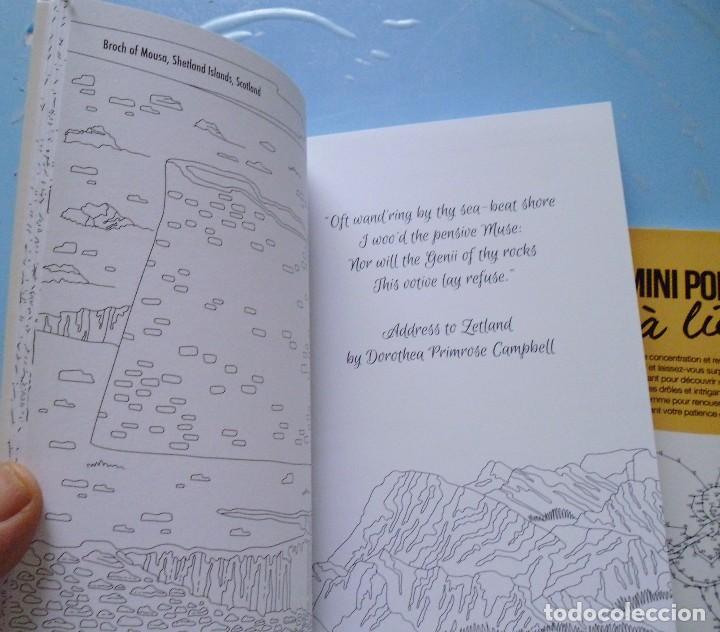 Broch of Mousa, Shetland Islands, Scotland
"Oft wand'ring by thy sea-beat shore
I woo'd the pensive Muse:
Nor will the Genii of thy rocks
This votive lay refuse."
Address to Zetland
by Dorothea Primrose Campbell
MINI
à
concentration et
et laissez-vous
pour découvrir
drôles et
votre patience
todocoleccion